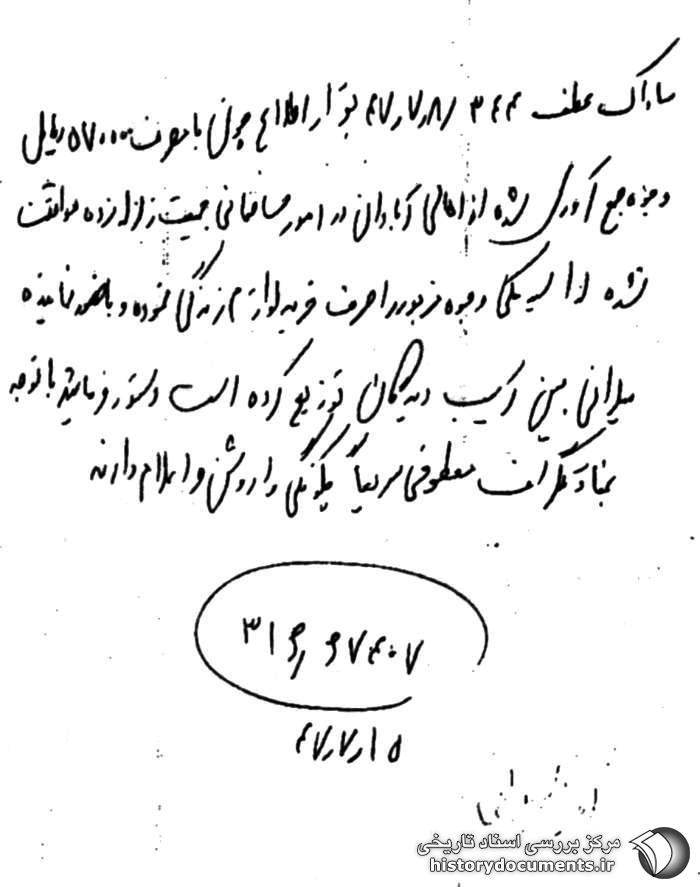 ساواک عطف ۳۴۴ ۴۷٫۷٫۸ برابر اطلاع چون با صرف ۵۷۰۰۰ ریال
وجوه جمع آوری شده از اهالی آبادان در امور ساختمانی جمعیت زلزله زده موافقت
نشده لذا وجوه مزبور را صرف خرید لوازم زندگی نموده و با نماینده
میلانی بین توزیع کرده است دستور فرمائید با توجه
بمفاد تلگراف معطوفی سریعاً چگونگی را روشن و اعلام دارند
۳۱۶
۴۷٫۷٫۱۵
مرکز بررسی اسناد تاریخی
historydocuments.ir